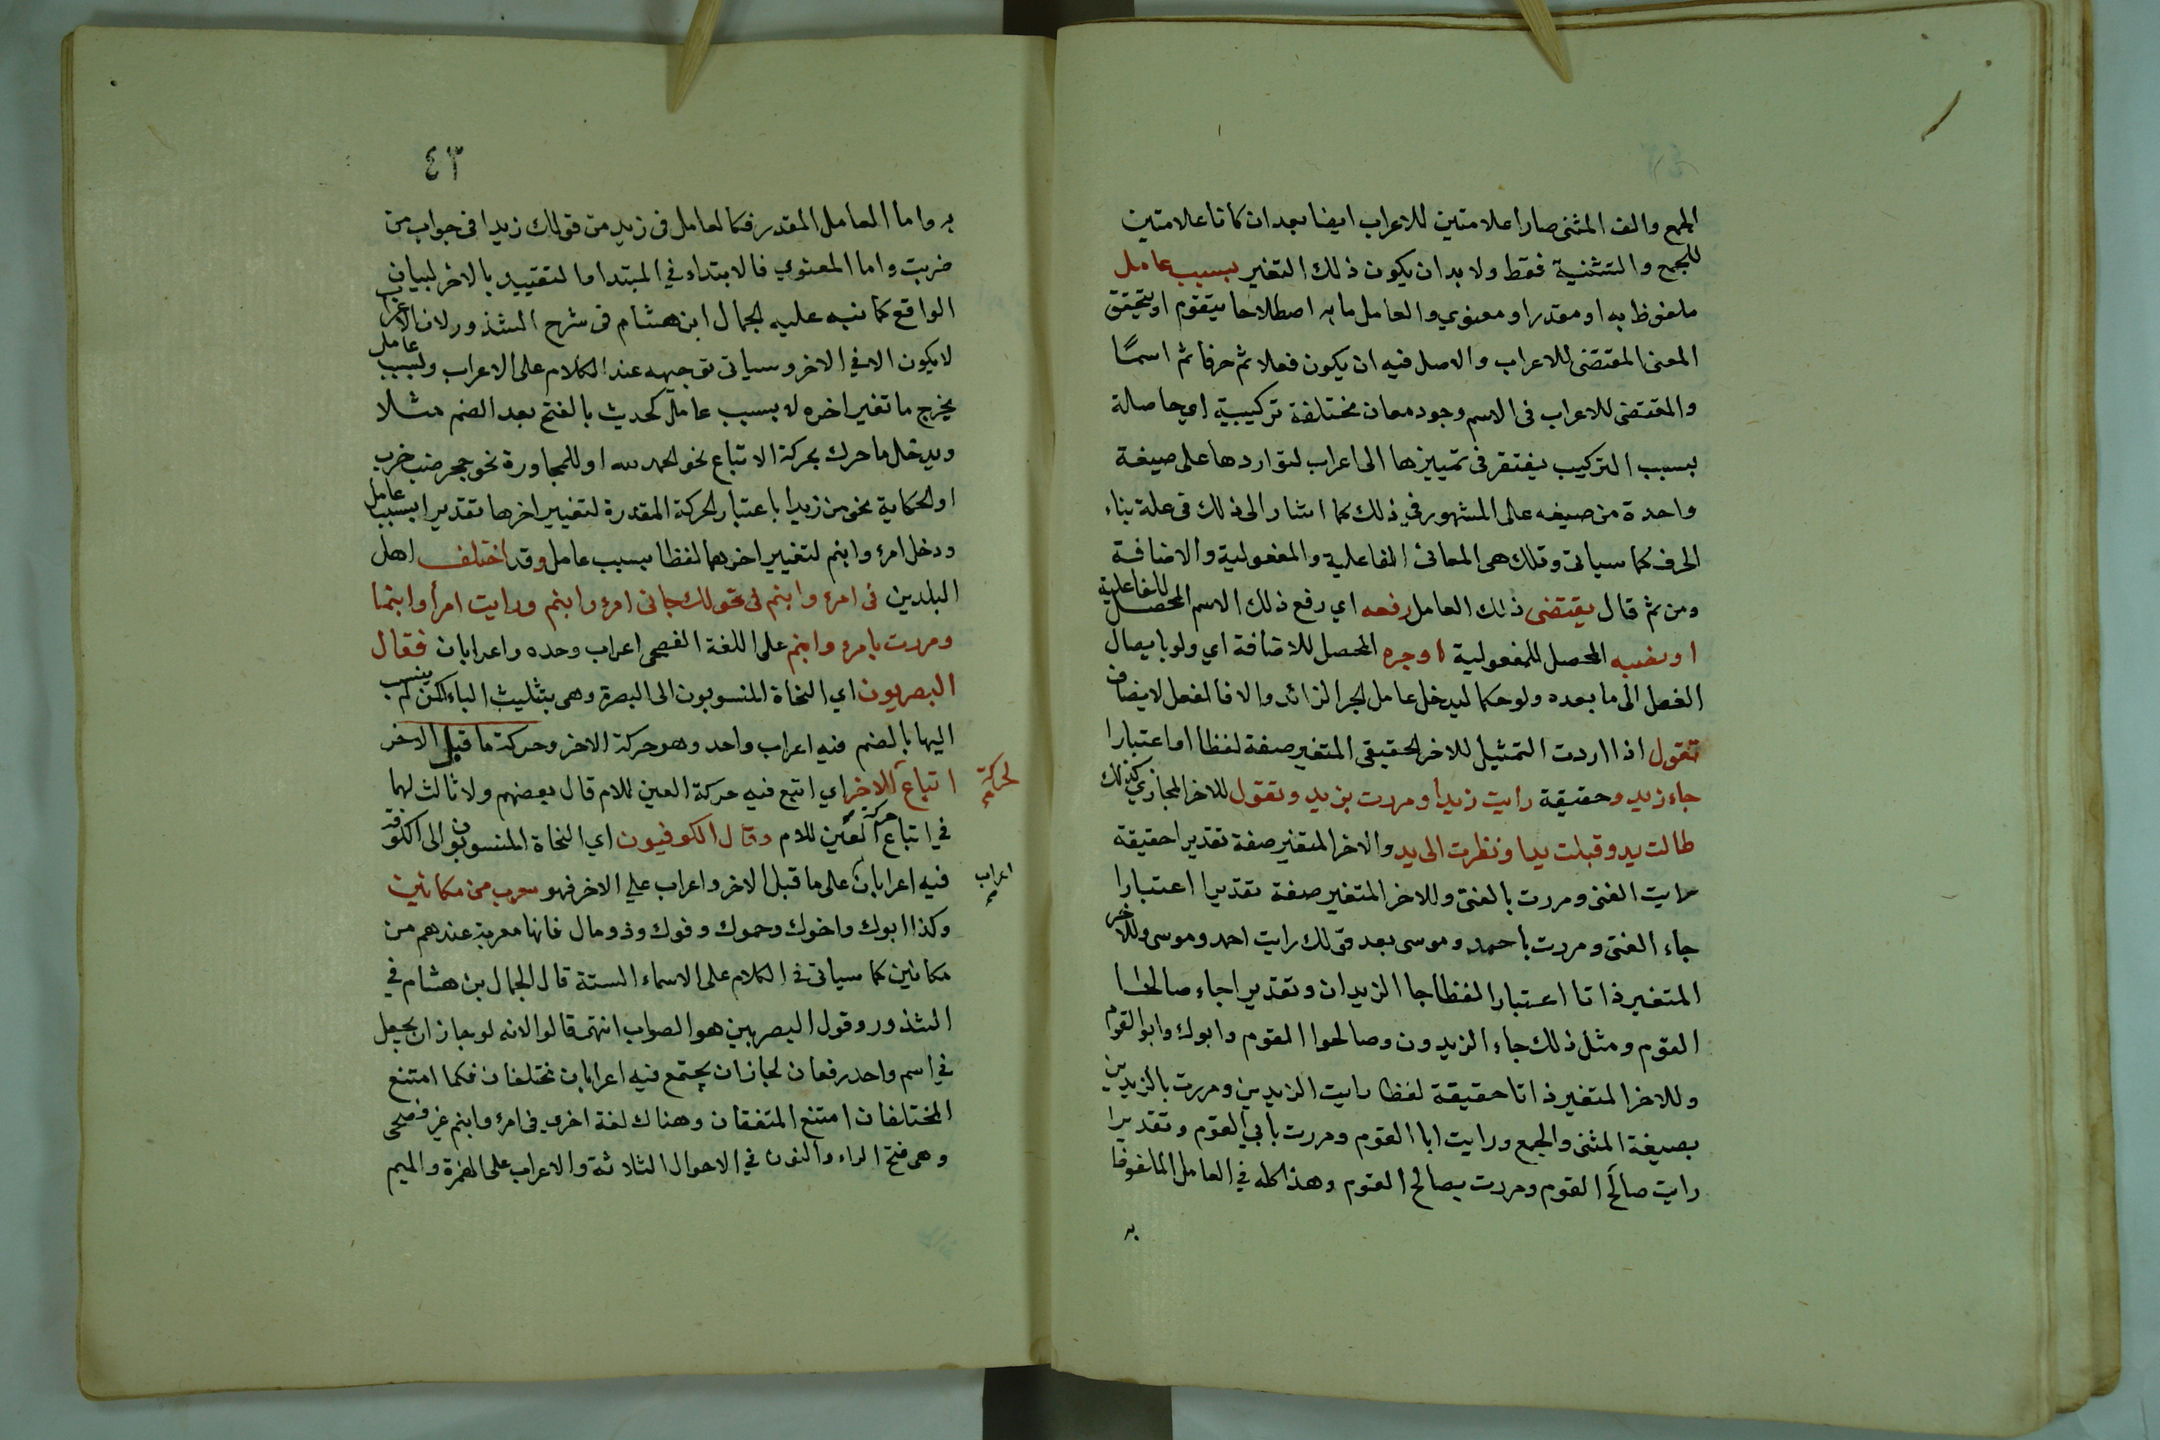 الجمع والف المثنى صارا علامتين للاعراب ايضا بعد ان كانا علامتين
للجمع والتثنية فقط ولا بد ان يكون ذلك التغير بسبب عامل
ملفوظ به او مقدر او معنوي والعامل ما به اصطلاحا يتقوم او يتحقق
المعنى المقتضى للاعراب والاصل فيه ان يكون فعلا ثم حرفا ثم اسمًا
والمقتضى للاعراب فى الاسم وجود معان مختلفة تركيبية اي حاصلة
بسبب التركيب يفتقر فى تمييزها الى اعراب لتواردها على صيغة
واحدة من صيغه على المشهور في ذلك كما اشار الى ذلك فى علة بناء
الحرف كما سياتى وتلك هى المعانى الفاعلية والمفعولية والاضافة
ومن ثم قال يقتضى ذلك العامل رفعه اي رفع ذلك الاسم المحصل للفاعلية
او نصبه المحصل للمفعولية او جره المحصل للاضافة اي ولو بايصال
الفعل الى ما بعده ولو حكما ليدخل عامل الجر الزائد والا فالفعل لا يضاف
تقول اذا اردت التمثيل للاخر الحقيقى المتغير صفة لفظا او اعتبارا
جاء زيد وحقيقة رايت زيدا ومررت بزيد وتقول للاخر المجازي كذلك
طالت يد وقبلت يدا ونظرت الى يد والاخر المتغير صفة تقديرا حقيقة
رايت الفتى ومررت بالفتى وللاخر المتغير صفة تقديرا اعتبارا
جاء الفتى ومررت باحمد وموسى بعد قولك رايت احمد وموسى وللاخر
المتغير ذاتا اعتبارا لفظا جا الزيدان وتقديرا جاء صالحا
القوم ومثل ذلك جاء الزيدون وصالحوا القوم وابوك وابو القوم
وللاخر المتغير ذاتا حقيقة لفظا رايت الزيدين ومررت بالزيدين
بصيغة المثنى والجمع ورايت ابا القوم ومررت بابي القوم وتقديرا
رايت صالحَ القوم ومررت بصالح القوم وهذا كله في العامل الملفوظ
به
٤٣
به واما العامل المقدر فكالعامل فى زيد من قولك زيدا فى جواب من
ضربت واما المعنوي فالابتداء في المبتدا واما التقييد بالاخر لبيان
الواقع كما نبه عليه الجمال ابن هشام فى شرح الشذور ولان الاعراب
لا يكون الا في الاخر وسياتى توجيهه عند الكلام على الاعراب ولسبب عامل
يخرج ما تغير اخره لا بسبب عامل كحديث بالفتح بعد الضم مثلا
ويدخل ما حرك بحركة الاتباع نحو الحمد لله او للمجاورة نحو جحر ضب خرب
او الحكاية نحو من زيدا باعتبار الحركة المقدرة لتغيير اخرها تقديرا بسبب عامل
ودخل امرء وابنم لتغيير اخرهما لفظا بسبب عامل وقد اختلف اهل
البلدين فى امرء وابنم فى نحو لك جانى امرء وابنم ورايت امرأ وابنما
ومررت بامرء وابنم على اللغة الفصحى اعراب وحده واعرابان فقال
البصريون اي النحاة المنسوبون الى البصرة وهى بتثليث الباء لكن لم ينسب
اليها بالضم فيه اعراب واحد وهو حركة الاخر وحركة ما قبل الاخر
اتباع للاخر اي اتبع فيه حركة العين للام قال بعضهم ولا ثالث لهما
لحركة
في اتباع حركة العين للام وقال الكوفيون اي النحاة المنسوبون الى الكوفة
فيه اعرابان على ما قبل الاخر واعراب على الاخر فهو معرب من مكانين
اعراب
وكذا ابوك واخوك وحموك وفوك وذو مال فانها معربة عندهم من
مكانين كما سياتى فى الكلام على الاسماء الستة قال الجمال بن هشام في
الشذور وقول البصريين هو الصواب انتهى قالوا لانه لو جاز ان يجعل
في اسم واحد رفعان لجاز ان يجتمع فيه اعرابان مختلفان فكما امتنع
المختلفان امتنع المتفقان وهناك لغة اخرى فى امرء وابنم غير فصحى
وهى فتح الراء والنون في الاحوال الثلاثة والاعراب على الهمزة والميم